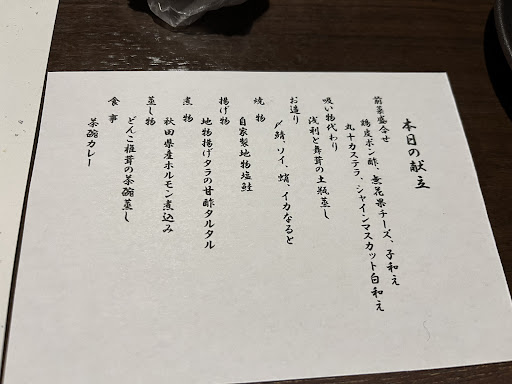 本日の献立
前菜盛合せ
鶏皮ポン酢、無花果チーズ、子和え
丸十カステラ、シャインマスカット白和え
吸い物代わり
浅利と舞茸の土瓶蒸し
お造り
〆鯖、ソイ、蛸、イカなると
焼物
自家製地物塩鮭
揚げ物
地物揚げタラの甘酢タルタル
煮物
秋田県産ホルモン煮込み
蒸し物
どんこ椎茸の茶碗蒸し
食事
茶碗カレー